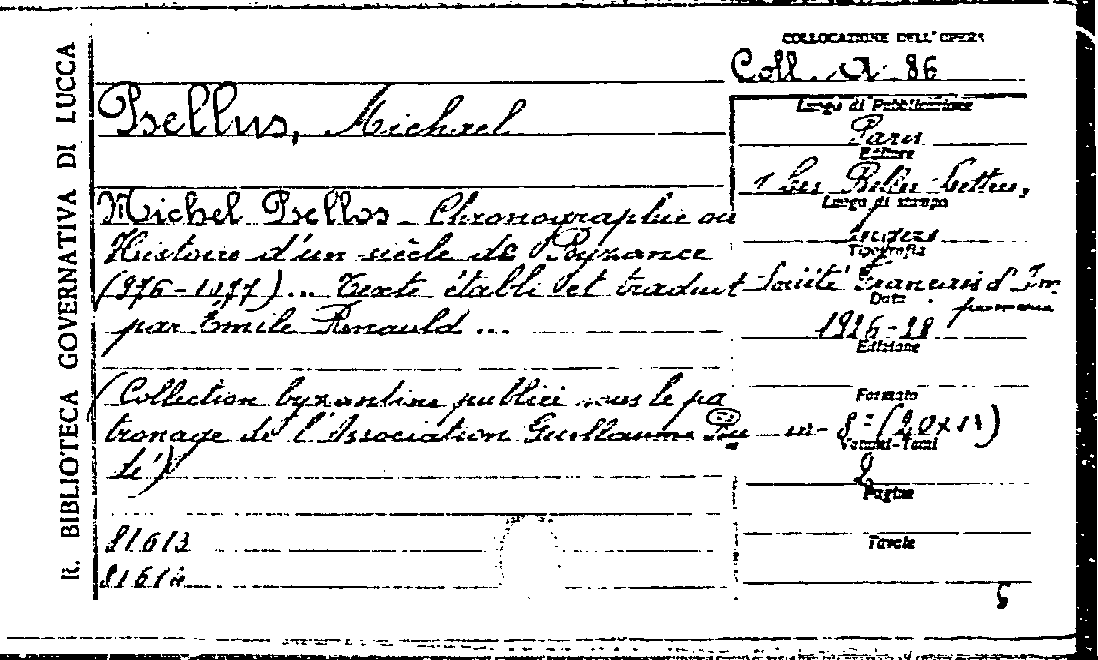 R. BIBLIOTECA GOVERNATIVA DI LUCCA
COLLOCAZIONE DELL'OPERA
Coll. A 86
Psellus, Michael
Michel Psellos - Chronographie ou
Histoire d'un siècle de Byzance
(976-1077) ... Texte établi et traduit
par Emile Renauld ...
(Collection byzantine publiée sous le pa
tronage de l'Association Guillaume Bu
dé)
81613
81614
Luogo di Pubblicazione
Paris
Editore
"Les Belles-Lettres,
Luogo di stampa
Angers
Tipografia
Société Française d'Im
primerie
Data
1926-28
Edizione
Formato
in-8° (20x13)
Volumi-Tomi
2
Pagine
Tavole